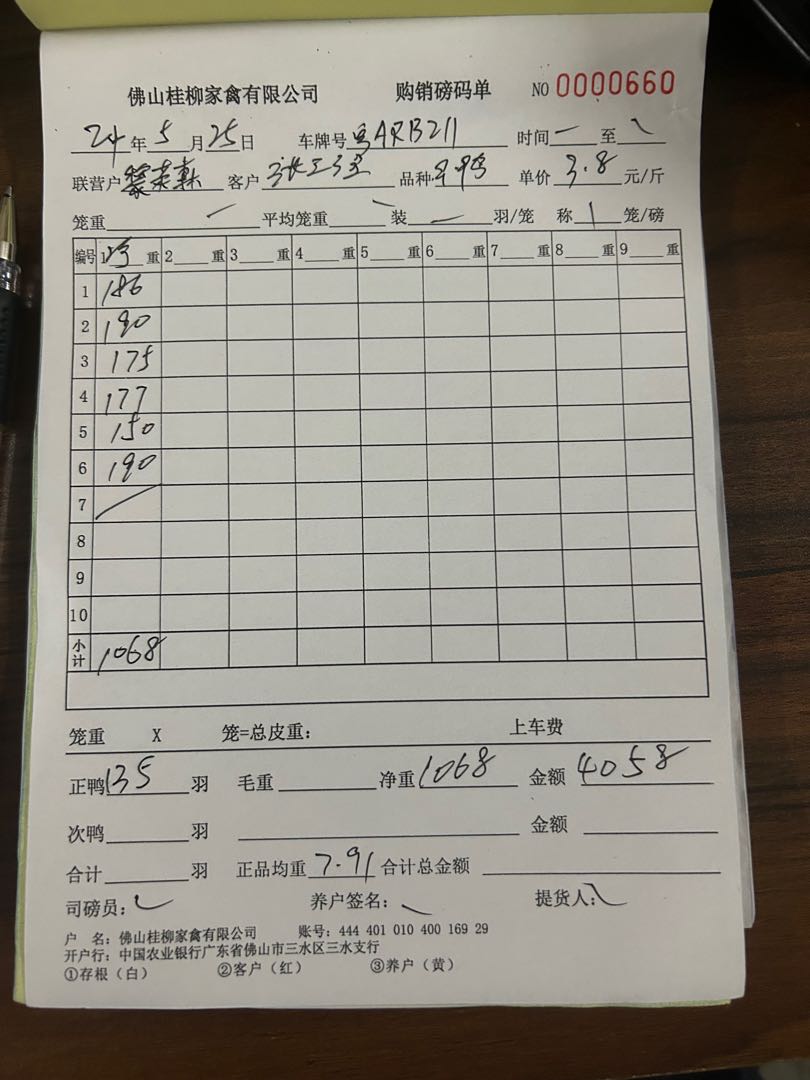 佛山桂柳家禽有限公司 购销磅码单 NO 0000660
24年5月25日 车牌号粤ARB211 时间一至
联营户 客户 品种 单价3.8元/斤
笼重 平均笼重 装 羽/笼 称1笼/磅
编号 1净重 2重 3重 4重 5重 6重 7重 8重 9重
1 186
2 190
3 175
4 177
5 150
6 190
7
8
9
10
小计 1068
笼重 X 笼=总皮重: 上车费
正鸭135羽 毛重 净重1068 金额4058
次鸭 羽 金额
合计 羽 正品均重7.91 合计总金额
司磅员: 养户签名: 提货人:
户 名: 佛山桂柳家禽有限公司 账号: 444 401 010 400 169 29
开户行: 中国农业银行广东省佛山市三水区三水支行
①存根(白) ②客户(红) ③养户(黄)